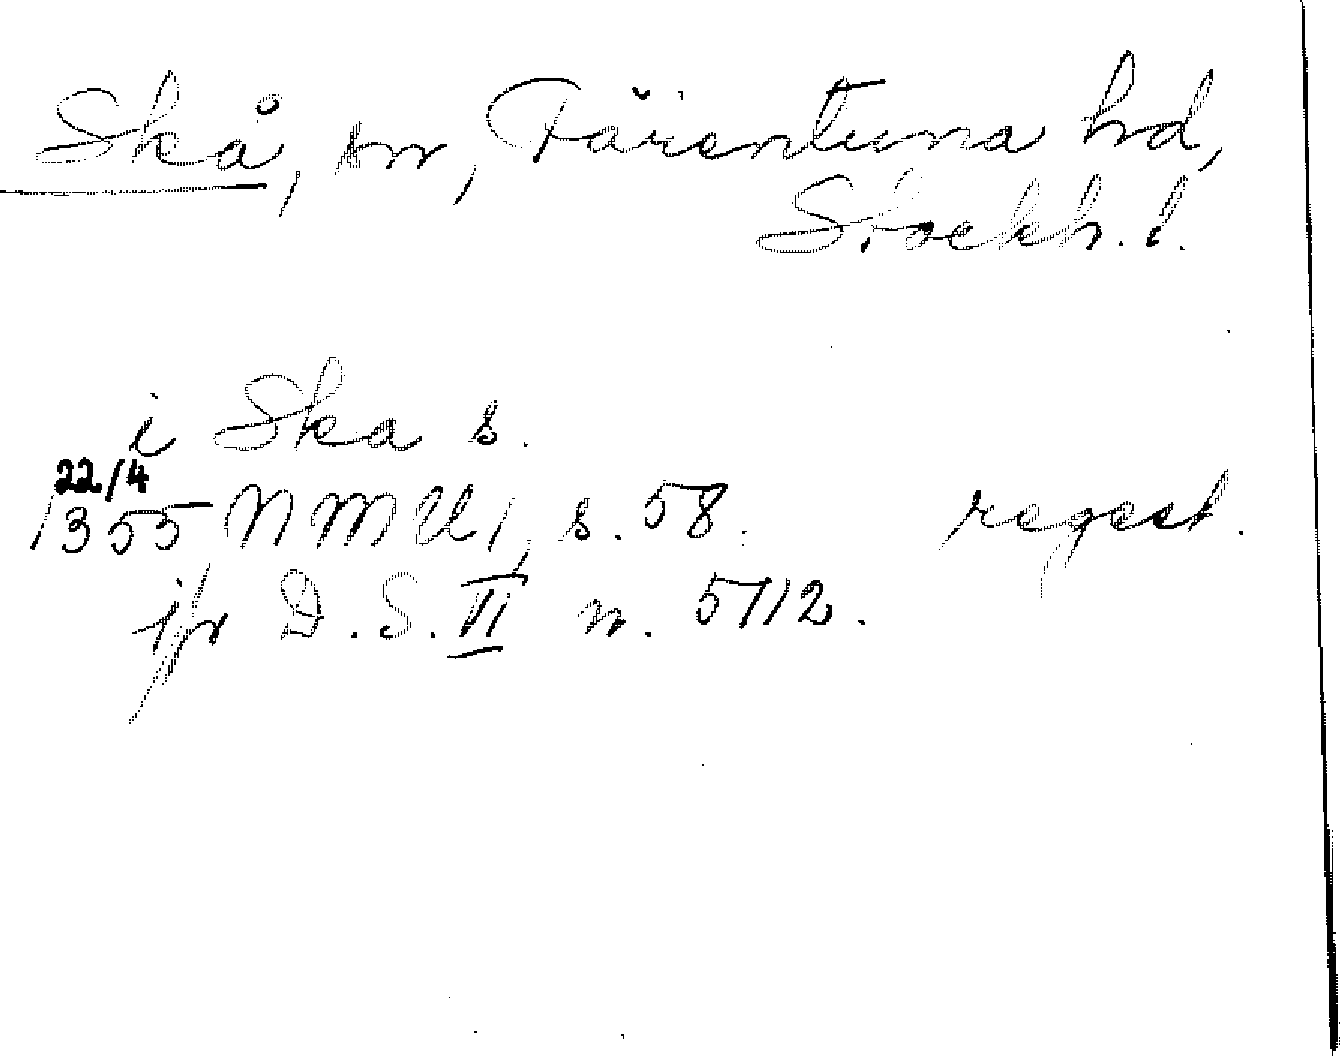 Skå, sn, Färentuna hd,
Stockh. l.
i Ska s.
22/4
1355 NMU 1, s. 58. regest.
jfr D. S. VI n. 5712.